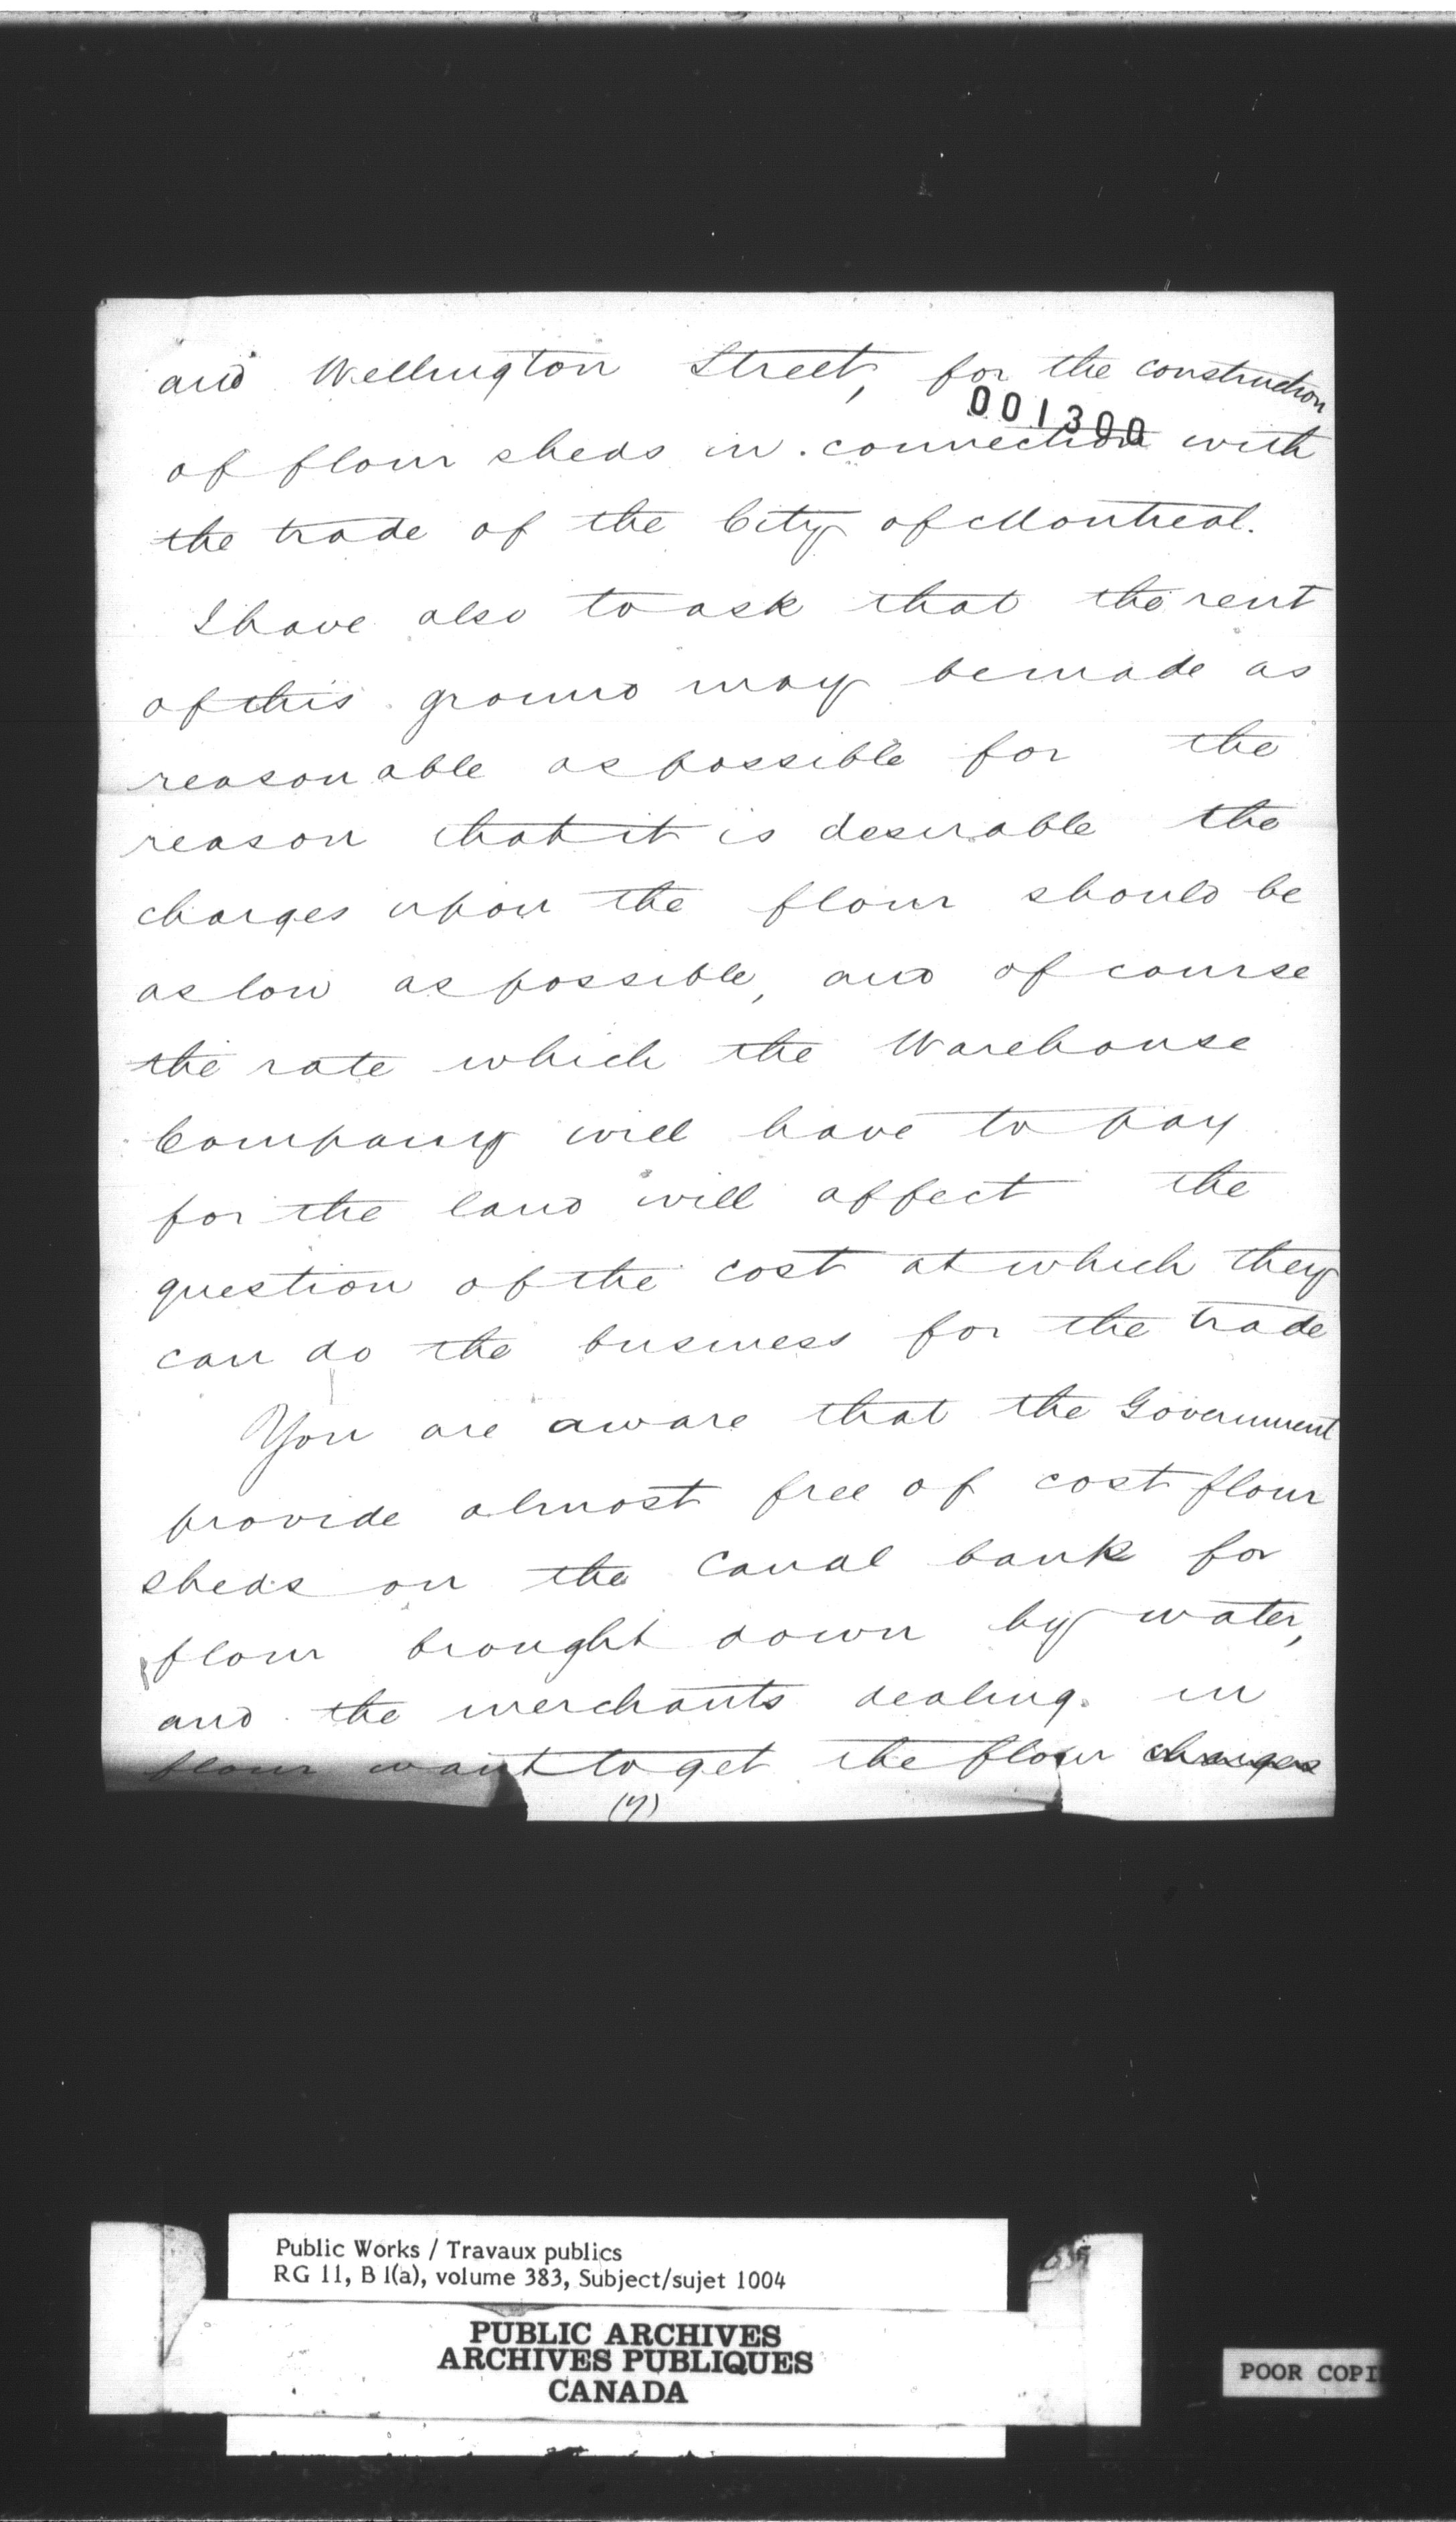 and Wellington Street, for the construction
001300
of flour sheds in connection with
the trade of the City of Montreal.
I have also to ask that the rent
of this ground may be made as
reasonable as possible for the
reason that it is desirable the
charges upon the flour should be
as low as possible, and of course
the rate which the Warehouse
Company will have to pay
for the land will affect the
question of the cost at which they
can do the business for the trade
You are aware that the Government
provide almost free of cost flour
sheds on the Canal bank for
flour brought down by water,
and the merchants dealing in
flour want to get the flour charges
Public Works / Travaux publics
RG 11, B 1(a), volume 383, Subject/sujet 1004
PUBLIC ARCHIVES
ARCHIVES PUBLIQUES
CANADA
POOR COPI